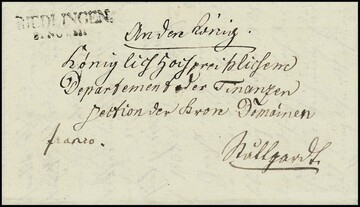 RIEDLINGEN.
21 NOV 1811
An den König.
Königlich Hochpreißlichem
Departement der Finanzen
Section der Kron Domainen
franco.
Stuttgardt.